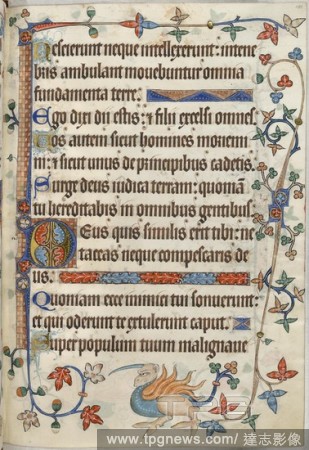 Nescierunt neque intellexerunt: in tene
bris ambulant movebuntur omnia
fundamenta terre.
Ego dixi dii estis: ⁊ filii excelsi omnes.
Vos autem sicut homines moriemi
ni: ⁊ sicut unus de principibus cadetis.
Surge deus iudica terram: quoniam
tu hereditabis in omnibus gentibus.
Deus quis similis erit tibi: ne
taceas neque compescaris de
us.
Quoniam ecce inimici tui sonuerunt:
et qui oderunt te extulerunt caput.
Super populum tuum malignave
TPG
www.tpgnews.com/ 達志影像